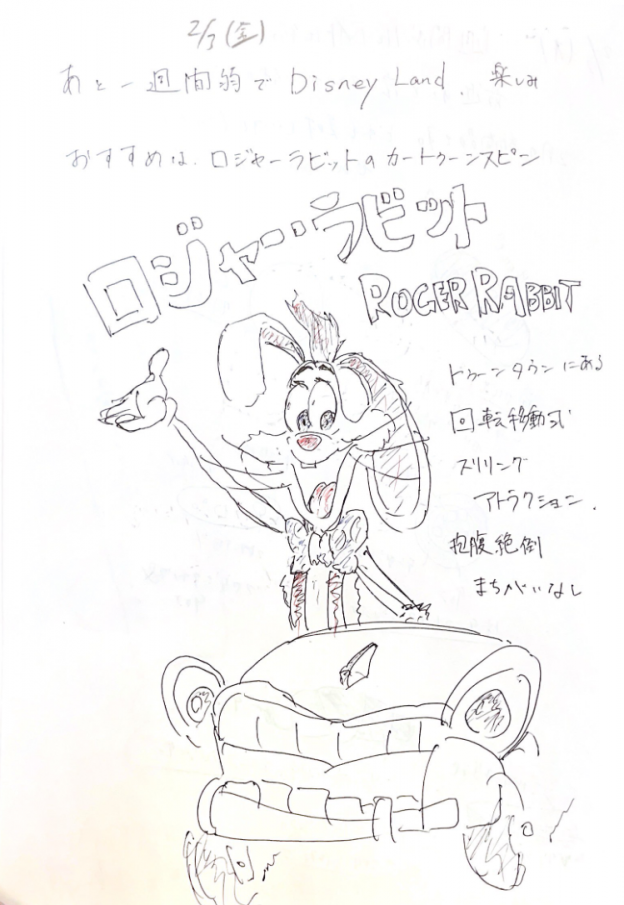 2/3 (金)
あと一週間弱で Disney Land. 楽しみ
おすすめは、ロジャーラビットのカートゥーンスピン
ロジャー・ラビット
ROGER RABBIT
トゥーンタウンにある
回転移動式
スリリング
アトラクション.
抱腹絶倒
まちがいなし